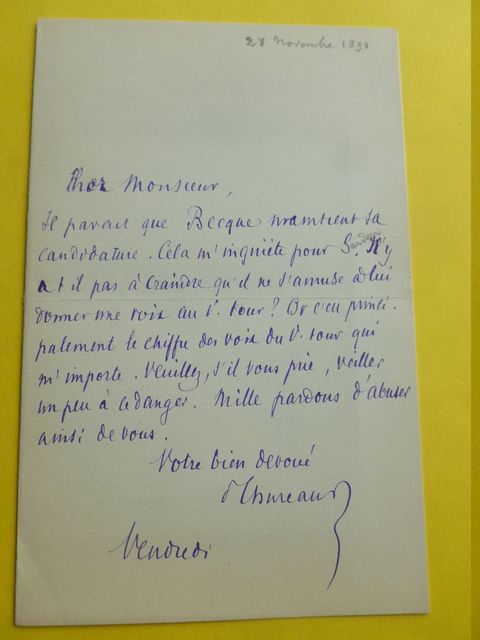 28 Novembre 1898
Cher Monsieur,
Il parait que Becque maintient sa
candidature. Cela m'inquiète pour S. N'y
ardou
a t il pas à craindre qu'il ne s'amuse à lui
donner une voix au 1r. tour? Or c'est princi-
palement le chiffre des voix du 1r. tour qui
m'importe. Veuillez, s'il vous prie, veiller
un peu à ce danger. Mille pardons d'abuser
ainsi de vous.
Votre bien dévoué
Thureau
Vendredi